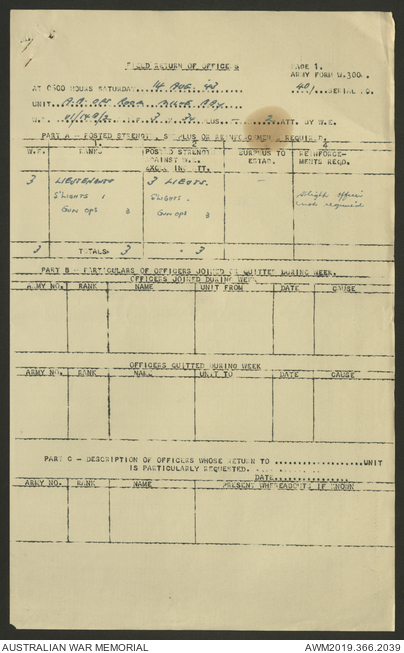 FIELD RETURN OF OFFICERS
PAGE 1.
ARMY FORM W.3000.
AT 0600 HOURS SATURDAY 14 AUG '43
40/ SERIAL NO.
UNIT
W.E. PLUS 2 ATT. BY W.E.
PART A - POSTED STRENGTH, SURPLUS OR REINFORCEMENTS REQUIRED.
1. 2 3 4
W.E. RANKS POSTED STRENGTH AGAINST W.E. EXCL. ATT. SURPLUS TO ESTAB. REINFORCEMENTS REQD.
3 LIEUTENANTS 3 LIEUTS. —
S'LIGHTS S'LIGHTS. S'light officer not required
GUN OPS 3 GUN OPS 3
3 TOTALS. 3 - 3
PART B - PARTICULARS OF OFFICERS JOINED OR QUITTED DURING WEEK.
OFFICERS JOINED DURING WEEK
ARMY NO. RANK NAME UNIT FROM DATE CAUSE
OFFICERS QUITTED DURING WEEK
ARMY NO. RANK NAME UNIT TO DATE CAUSE
PART C - DESCRIPTION OF OFFICERS WHOSE RETURN TO ....................UNIT
IS PARTICULARLY REQUESTED.
DATE.................
ARMY NO. RANK NAME PRESENT WHEREABOUTS IF KNOWN
AUSTRALIAN WAR MEMORIAL AWM2019.366.2039